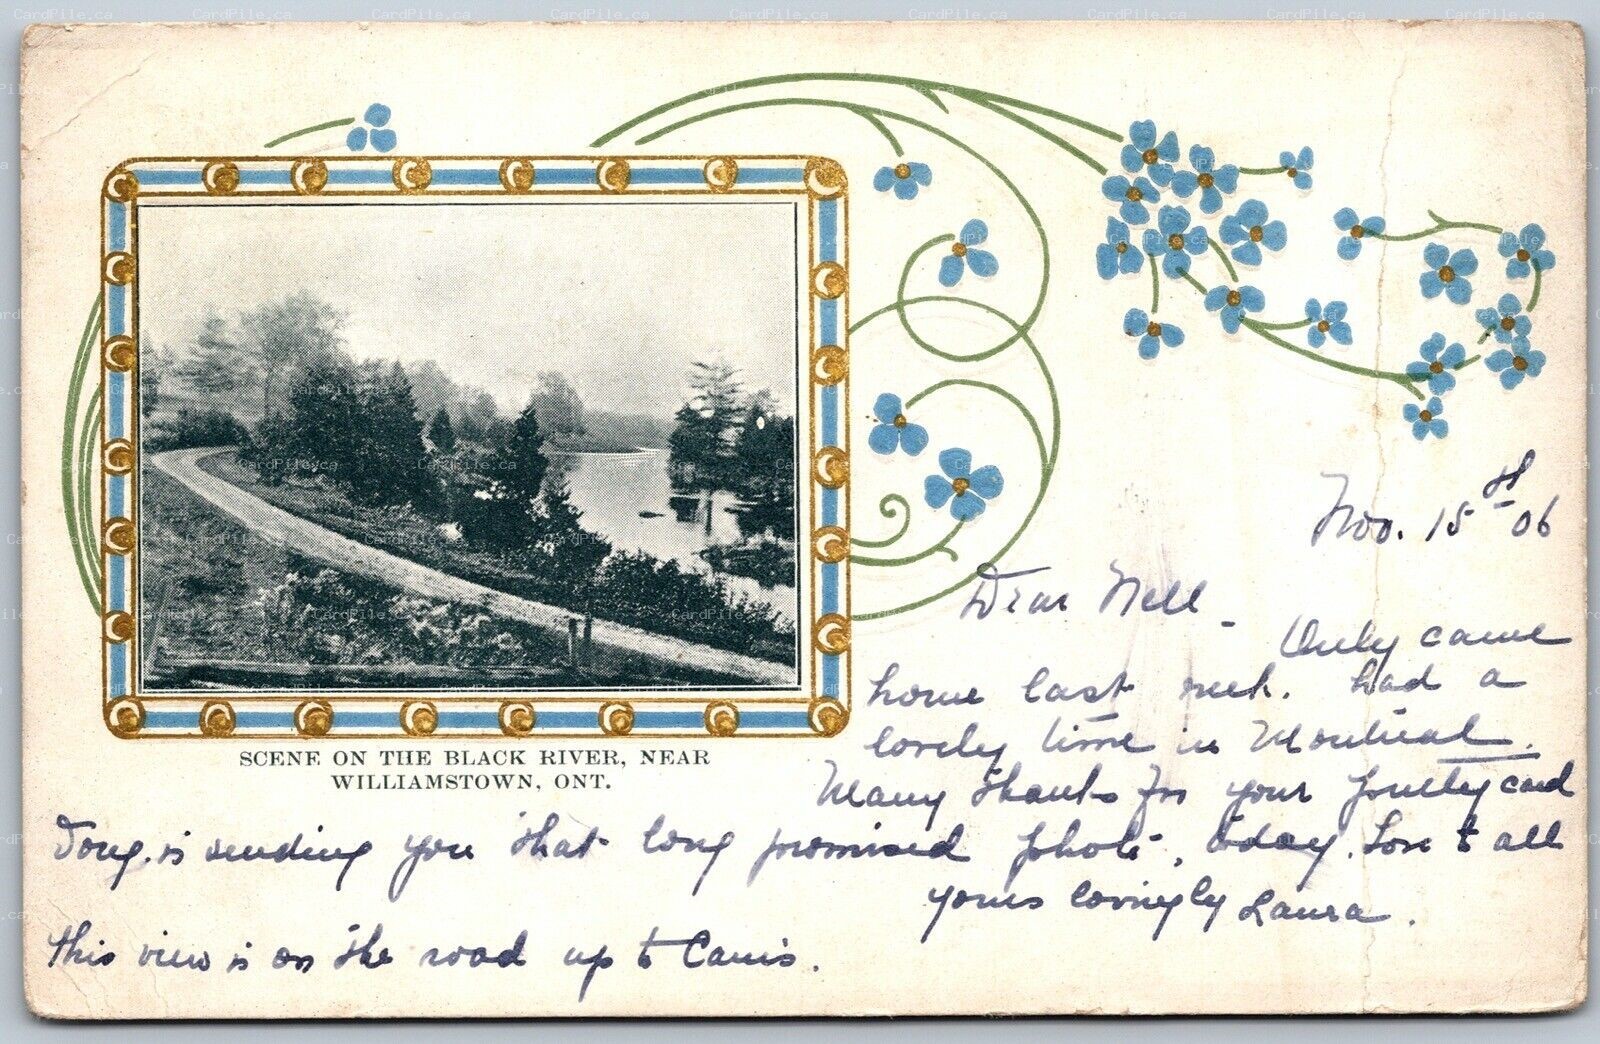 SCENE ON THE BLACK RIVER, NEAR
WILLIAMSTOWN, ONT.
Nov. 15th 06
Dear Nell -
Only came
home last week. had a
lovely time in Montreal.
Many thanks for your pretty card
Doug. is sending you that long promised photo, today. Love to all
yours lovingly Laura.
This view is on the road up to
CardPile.ca